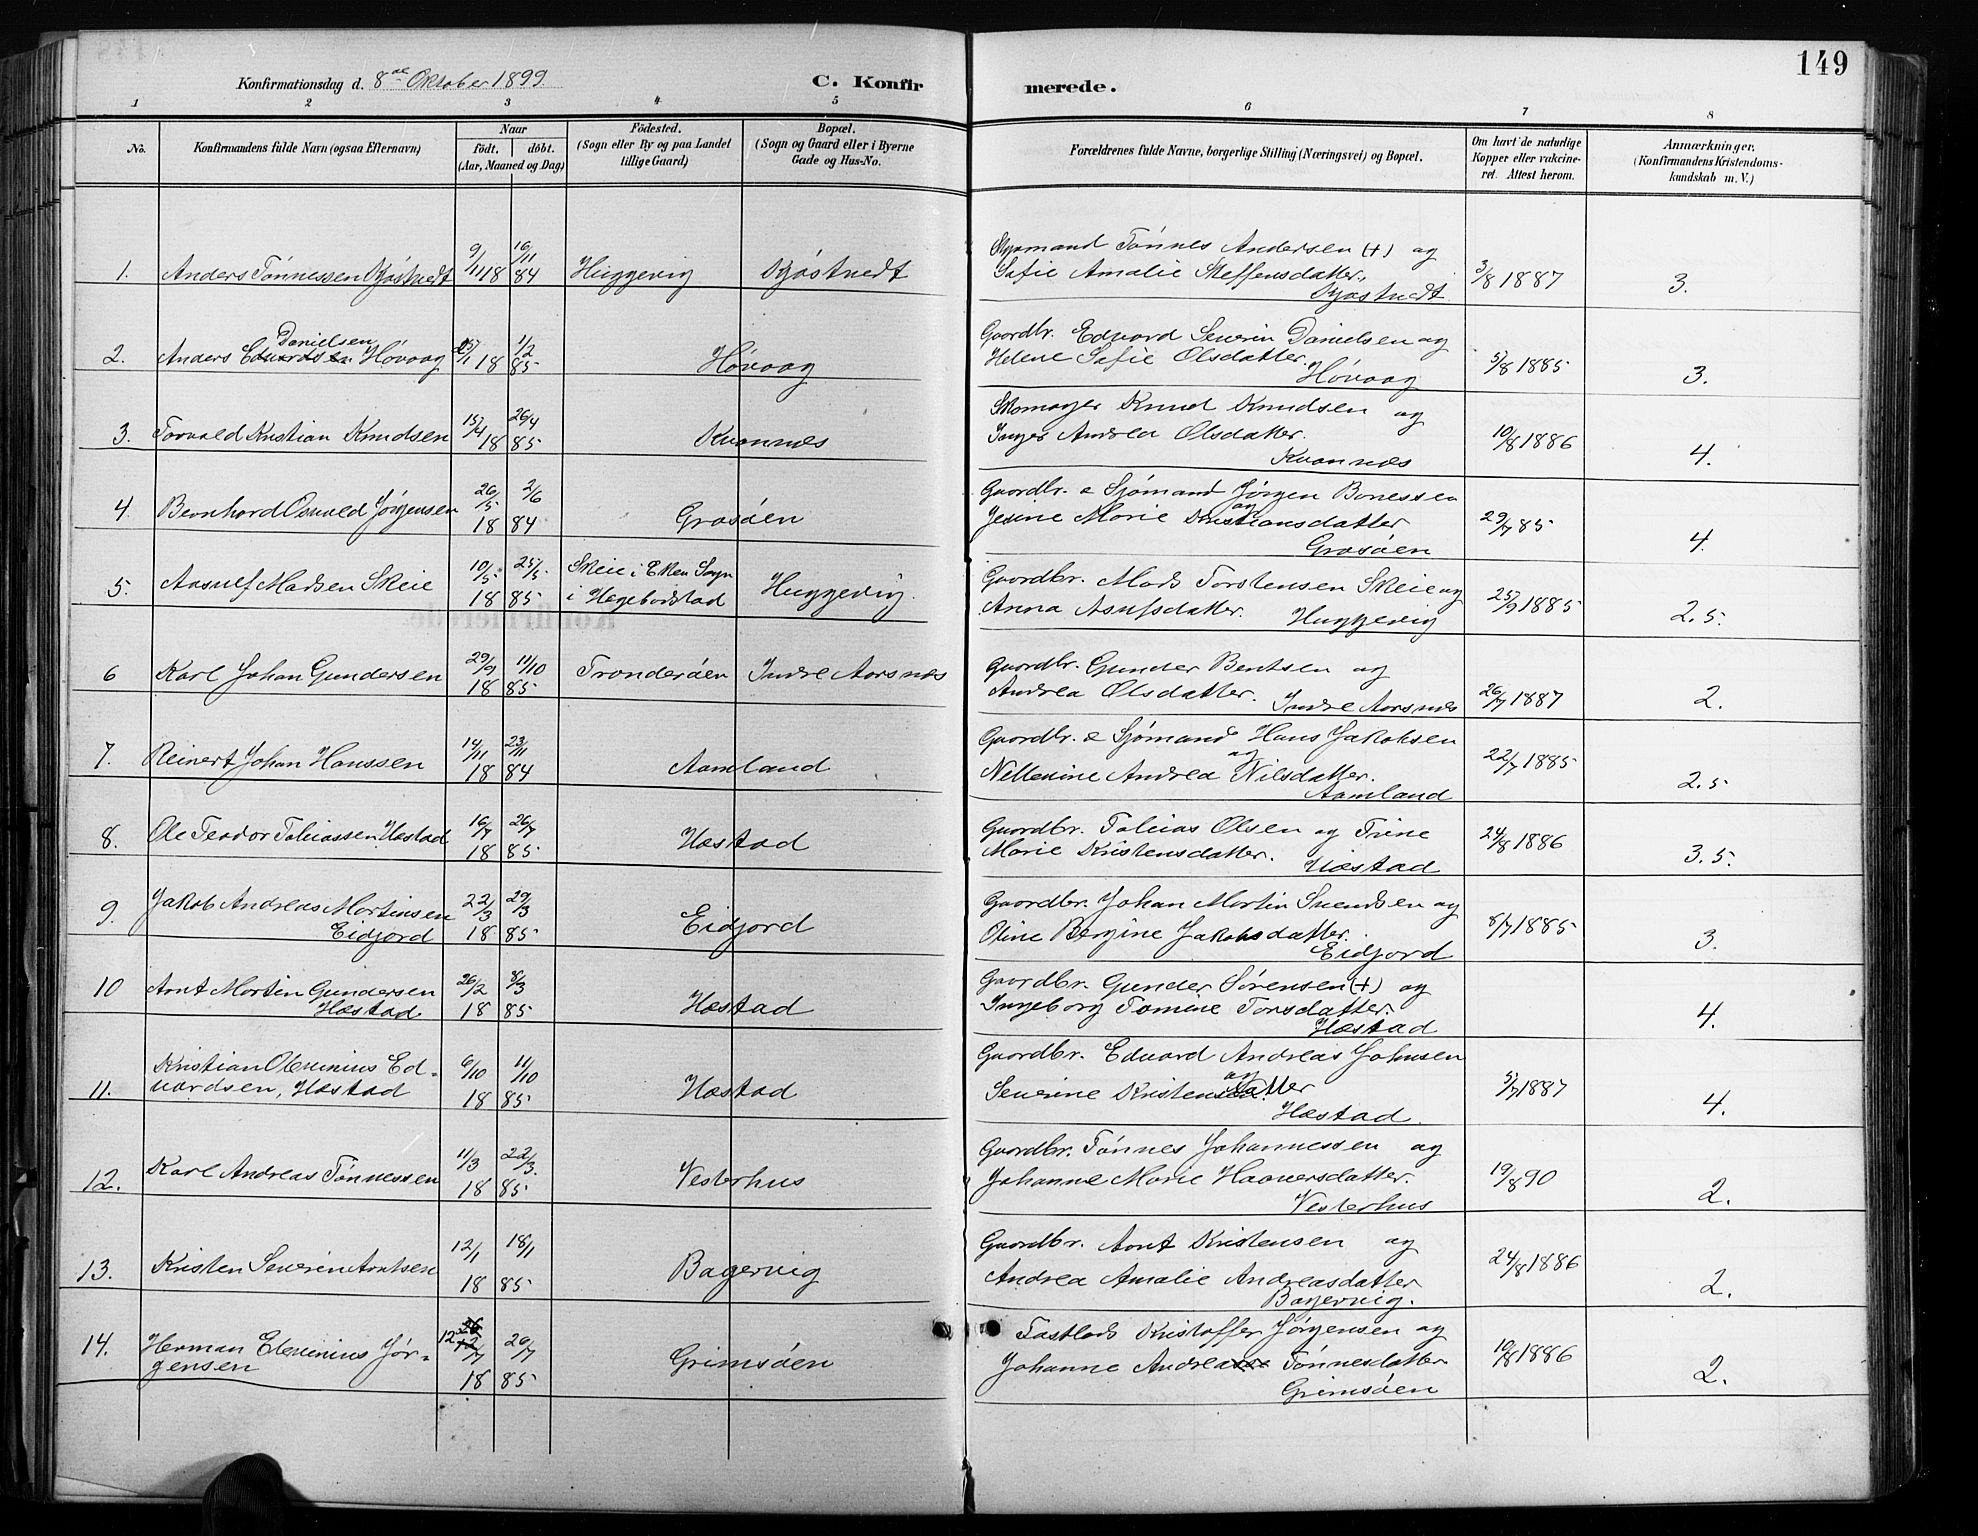 149
Konfirmationsdag d. 8de Oktober 1899.
C. Konfirmerede.
1 2 3 4 5 6 7 8
No.
Konfirmandens fulde Navn (ogsaa Efternavn)
Naar
födt. döbt.
(Aar, Maaned og Dag)
Födested.
(Sogn eller By og paa Landet
tillige Gaard)
Bopæl.
(Sogn og Gaard eller i Byerne
Gade og Hus-No.
Forældrenes fulde Navne, borgerlige Stilling (Næringsvei) og Bopæl.
Om havt de naturlige
Kopper eller vakcine-
ret. Attest herom.
Anmærkninger.
(Konfirmandens Kristendoms-
kundskab m. V.)
1. Anders Tønnessen 9/11 18 16/11 84 Huggevig
Tønnes Andersen (+) og
Sofie Amalie Steffensdatter.
3/8 1887 3.
2. Anders Danielsen Høvaag 18 1/2 85 Høvaag
Gaardbr. Edvard Severin Danielsen og
Helene Sofie Olsdatter.
Høvaag
5/8 1885 3.
3. Torvald Kristian Knudsen 15/4 18 26/4 85 Kvannes
Skomager Knud Knudsen og
Inger Andrea Olsdatter.
Kvannes
10/8 1886 4.
4. Bernhard Osvald Jørgensen 26/5 18 2/6 84 Grosøen
Gaardbr. & Sjømand Jørgen Bonessen
og
Jesine Marie Kristiansdatter
Grosøen
29/7 85 4.
5. Aasulf Madsen Skeie 10/5 18 25/5 85 Skeie i Eken Sogn
i Hegebodstad Huggevig.
Gaardbr. Mads Torstensen Skeie og
Anna Asulfsdatter. Huggevig
25/9 1885 2.5.
6 Karl Johan Gundersen 29/9 18 11/10 85 Tronderøen Indre Aarsnes
Gaardbr. Gunder Bentsen og
Andrea Olsdatter. Indre Aarsnes
26/7 1887 2.
7. Reinert Johan Hanssen 14/11 18 23/11 84 Aamland
Gaardbr. & Sjømand Hans Jakobsen
og
Nellenine Andrea Nilsdatter.
Aamland
22/7 1885 2.5
8. Ole Teodor Tobiassen Hæstad 16/7 18 26/7 85 Hæstad
Gaardbr. Tobias Olsen og Trine
Marie Kristensdatter. Hæstad
24/8 1886 3.5.
9. Jakob Andreas Martinsen
Eidjord 22/3 18 29/3 85 Eidjord
Gaardbr. Johan Martin Svendsen og
Oline Bergine Jakobsdatter.
Eidjord
8/7 1885 3.
10 Arnt Martin Gundersen
Hæstad 26/2 18 8/3 85 Hæstad
Gaardbr. Gunder Sørensen (+) og
Ingeborg Tomine Torsdatter.
Hæstad
4.
11. Kristian Olevinius Ed-
vardsen, Hæstad 6/10 18 11/10 85 Hæstad
Gaardbr. Edvard Andreas Johnsen
og
Severine Kristensdatter
Hæstad.
5/7 1887 4.
12. Karl Andreas Tønnessen 11/3 18 22/3 85 Vesterhus
Gaardbr. Tønnes Johannessen og
Johanne Marie Haaversdatter.
Vesterhus
19/8 90 2.
13. Kristen Severin Arntsen 12/1 18 18/1 85 Bagervig
Gaardbr. Arnt Kristensen og
Andrea Amalie Andreasdatter
Bagervig.
24/8 1886 2.
14. Herman Elevinius Jør-
gensen 18 26/7 85 Grimsøen
Kristoffer Jørgensen og
Johanne Andrea Tønnesdatter
Grimsøen
10/8 1886 2.